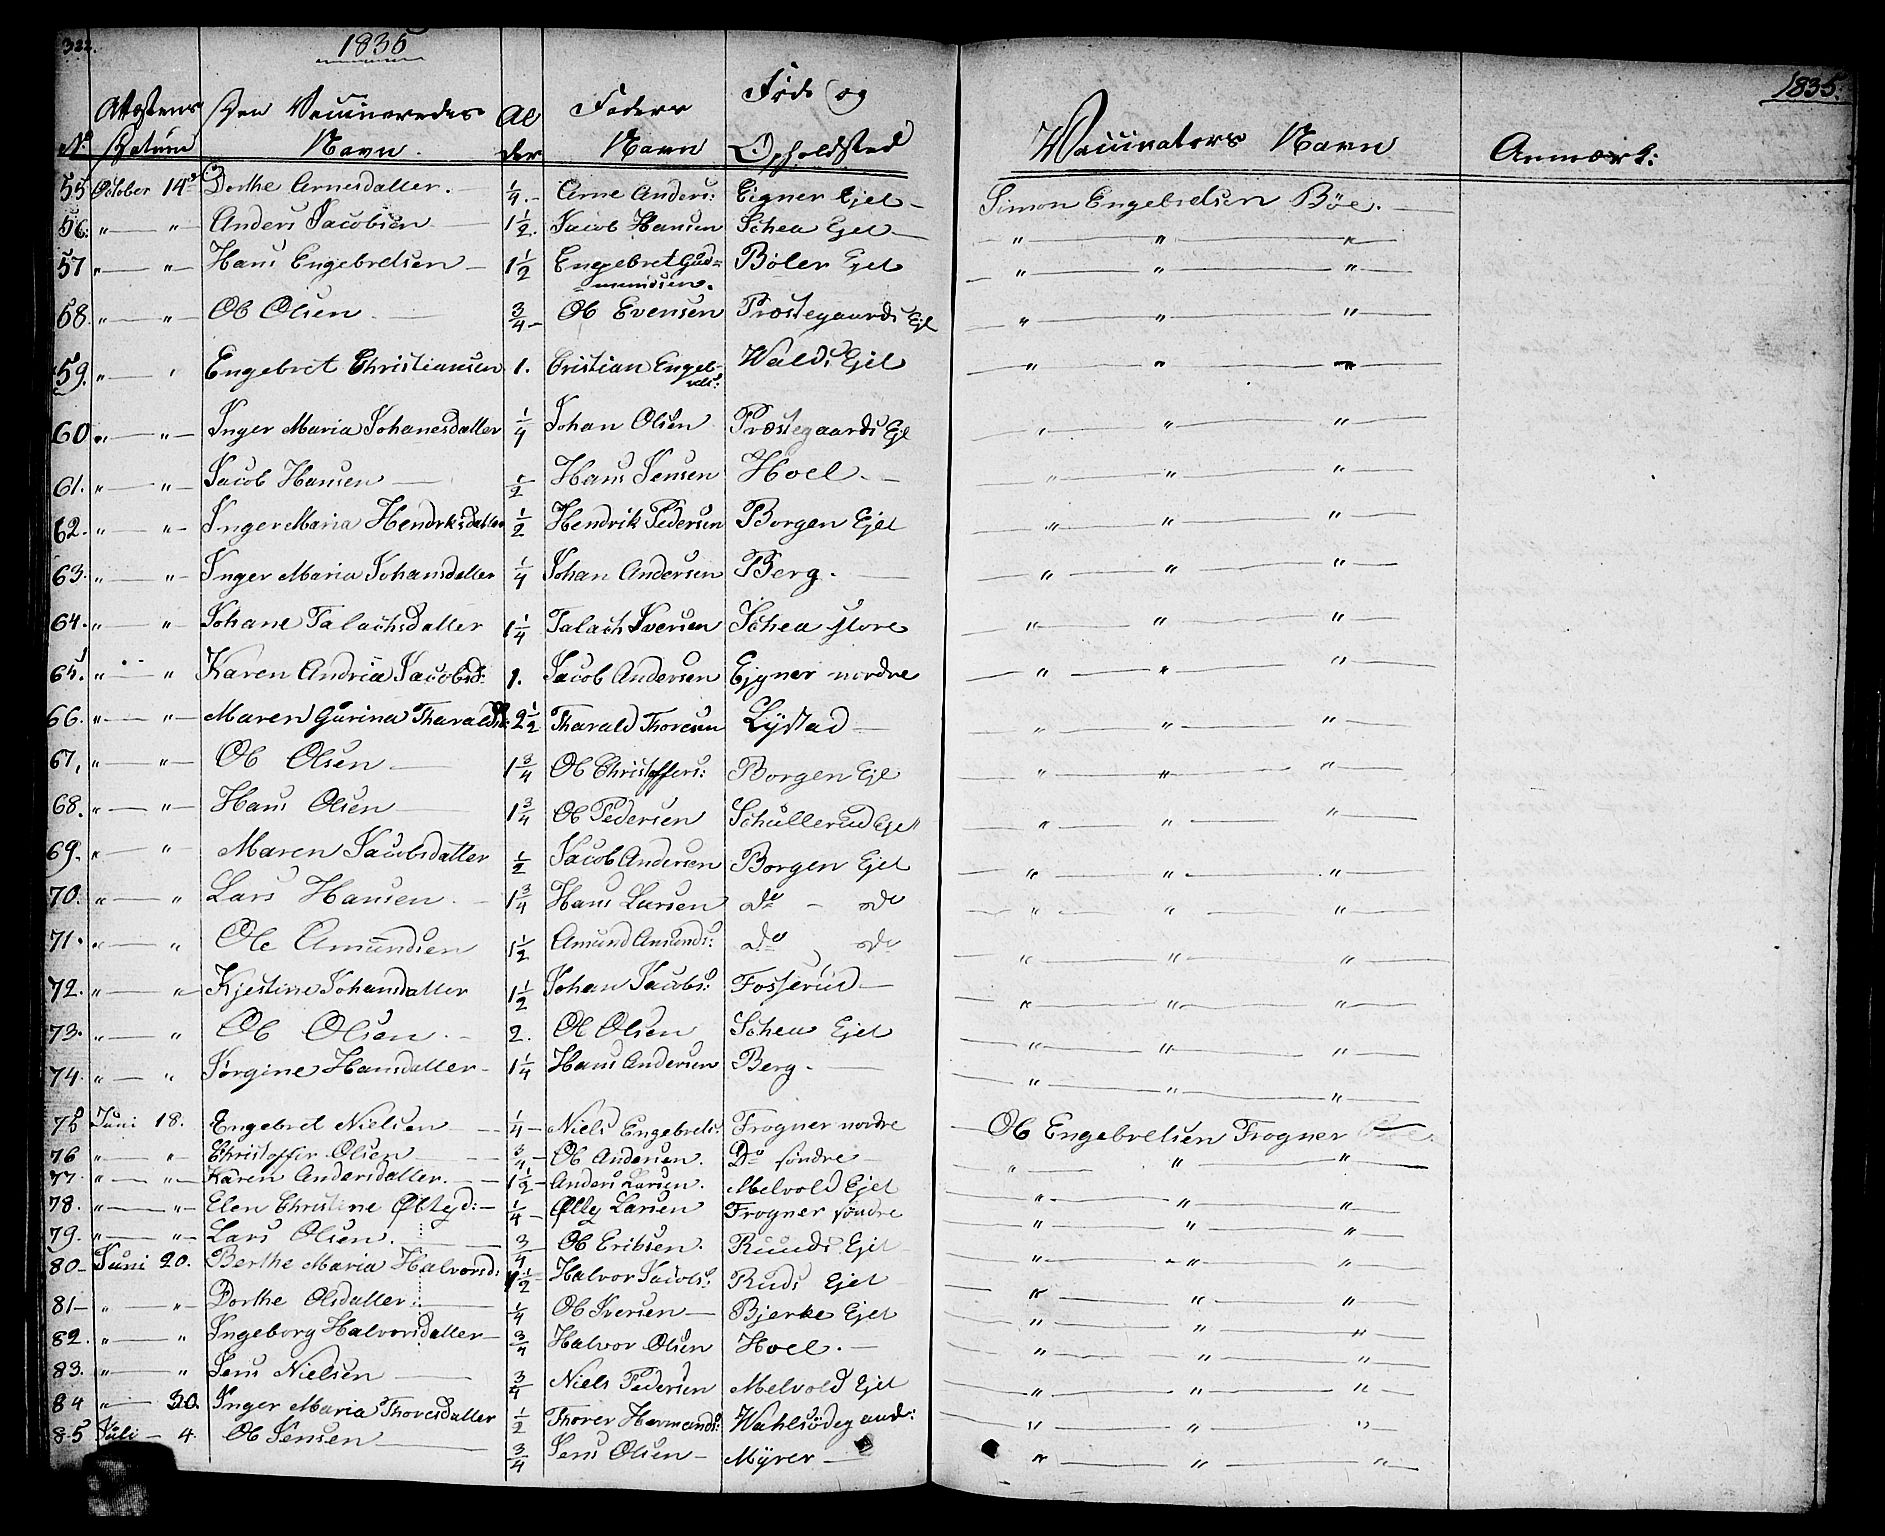 322.
1835
1835.
No Attestens Datum Den Vaccineredes Navn. Alder Faders Navn Føde og Opholdsted Vaccinators Navn Anmærk:
55 October 14de Dorthe Arnesdatter. — 1/4. - Arne Anders: Eigner Ejet - Simon Engebretsen Bøe. —
56. " — " Anders Jacobsen — 1 1/2. Jacob Hansen Schea Ejet — " — " — "
57 " — " Hans Engebretsen — 1 1/2 Engebret Gud= Bøler Ejet — " — " — "
= mundsen.
68. " — " Ole Olsen — 3/4 - Ole Evensen Præstegaards Ejl — " — " — "
59. " — " Engebret Christiansen 1. Cristian Engeb- Walds Ejet — " — " — "
rets:
60 " — " Inger Maria Johanesdatter 1/4 Johan Olsen Præstegaards Ejl — " — " — "
61. " — " Jacob Hansen — 1/2 Hans Jensen Hoel. — " — " — "
62. " — " Inger Maria Hendriksdatter 1/2 Hendrik Pedersen Borgen Ejet " — " — "
63. " — " Inger Maria Johansdatter 1/4 Johan Andersen Berg. — " — " — "
64. " — " Johane Talachsdatter 1 1/4 Talach Iversen Schea store — " — " — "
65. " — " Karen Andria Jacobsd: 1. Jacob Andersen Ejgner nordre — " — " — "
66. " — " Maren Gurina Tharaldsd: 2 1/2 Tharald Thoresen Lystad — " — " — "
67, " — " Ole Olsen — 1 3/4 Ole Christoffers: Borgen Ejl — " — " — "
68. " — " Hans Olsen — 1 3/4 Ole Pedersen Schullerud Ejet — " — " — "
69. " — " Maren Jacobsdatter 1/2 Jacob Andersen Borgen Ejet — " — " — "
70. " — " Lars Hansen. - 1 3/4 Hans Larsen do - do — " — " — "
71. " — " Ole Amundsen 1 1/2 Amund Amunds: Do do — " — " — "
72. " — " Kjestine Johansdatter 1 1/2 Johan Jacobs: Fosserud — " — " — "
73. " — " Ole Olsen. - 2. Ole Olsen Schea Ejet — " — " — "
74. " — " Jørgine Hansdatter - 1 1/4 Hans Andersen Berg. — " — " — "
75 Juni 18. Engebret Nielsen — 1/4 - Niels Engebrets: Frogner nordre Ole Engebretsen Frogner
76 " — " Christoffer Olsen — 3/4 - Ole Andersen. Do søndre — " — " — "
77. " — " Karen Andersdatter. — 1 1/2 - Anders Larsen. Melvold Ejet — " — " — "
78. " — " Elen Christine Ølleyd: - 1/4 - Ølley Larsen Frogner søndre — " — " — "
79. " — " Lars Olsen. — 3/4 Ole Eriksen. Ruuds Ejet — " — " — "
80 - Juni 20. Berthe Maria Halvorsd: 1 1/2 - Halvor Jacobs: Ruds Ejet — " — " — "
81 - " — " Dorthe Olsdatter. — 1/4 Ole Iversen — Bjerke Ejet — " — " — "
82. " — " Ingeborg Halvorsdatter - 3/4 Halvor Olsen Hoel. — " — " — "
83. " — " Jens Nielsen — 3/4 Niels Pedersen Melvold Ejet — " — " — "
84 " — 30. Inger Maria Thoresdatter 1/2 Thorer Hermands: Wahlsødegaard: — " — " — "
85 Juli - 4. Ole Jensen — 3/4 Jens Olsen - Myrer — " — " — "